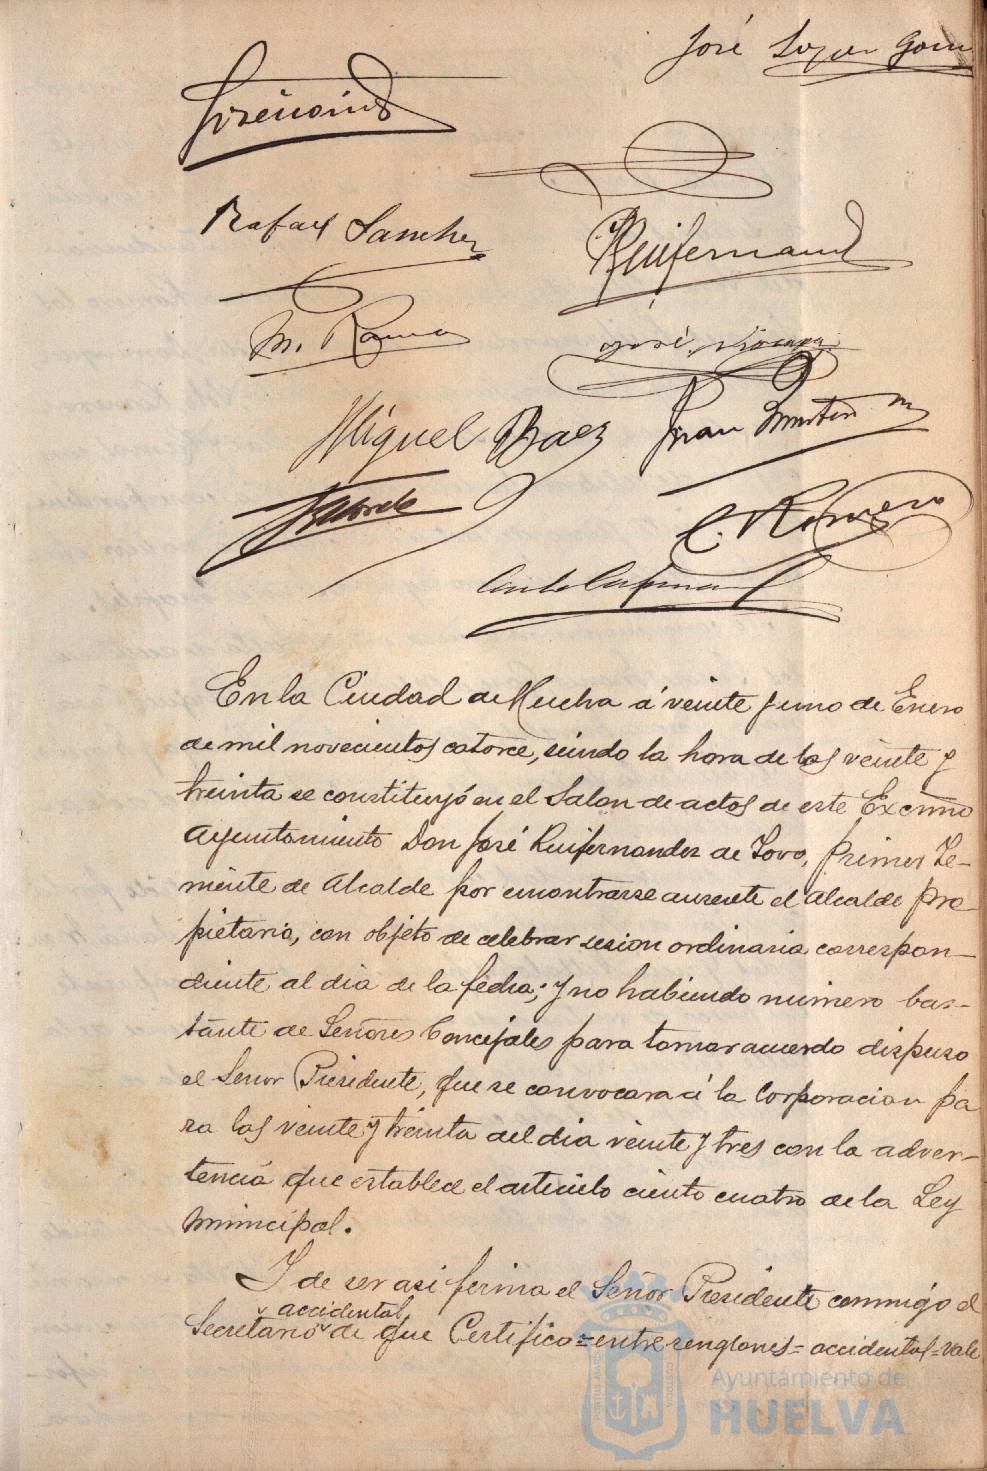 José
Rafael Sanchez
Ruifernand
M. Ramos
José
Miguel Baez
Juan
C. Romero
En la Ciudad de Huelva á veinte y uno de Enero
de mil novecientos catorce, siendo la hora de las veinte y
treinta se constituyó en el Salon de actos de este Excmo
Ayuntamiento Don José Ruifernandez de Tovo, primer Te-
niente de Alcalde por encontrarse ausente el Alcalde pro-
pietario, con objeto de celebrar sesion ordinaria correspon-
diente al dia de la fecha; y no habiendo numero bas-
tante de Señores Concejales para tomar acuerdo dispuso
el Señor Presidente, que se convocara á la Corporacion pa
ra las veinte y treinta del dia veinte y tres con la adver-
tencia que establece el articulo ciento cuatro de la Ley
Municipal.
Y de ser asi firma el Señor Presidente conmigo el
accidental
Secretario de que Certifico = entre renglones = accidental = vale
Ayuntamiento de
HUELVA